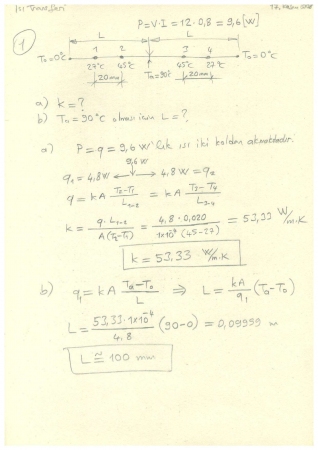 Isı Transferi
P=V.I = 12.0,8 = 9,6 [W]
1
L L
T₀=0°C 1 2 3 4 T₀=0°C
27°C 45°C 45°C 27°C
20mm Tα=90°C 20mm
a) k=?
b) Tα=90°C olması için L=?
a) P=q=9,6 W'lık ısı iki koldan akmaktadır.
9,6 W
q₁=4,8W ← → 4,8W=q₂
q = kA (T₂-T₁)/L₁₋₂ = kA (T₃-T₄)/L₃₋₄
k = q.L₁₋₂/A(T₂-T₁) = 4,8.0,020/1x10⁻⁴(45-27) = 53,33 W/m.K
k = 53,33 W/m.K
b) q₁ = kA (Tα-T₀)/L ⇒ L = kA/q₁ (Tα-T₀)
L = 53,33.1x10⁻⁴/4,8 (90-0) = 0,09999 m
L ≅ 100 mm